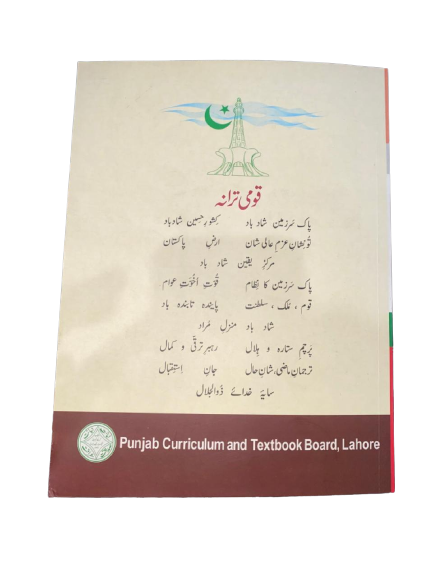 قومی ترانہ
پاک سَرزمین شاد باد کِشورِ حسین شاد باد
تُو نِشانِ عزمِ عالی شان ارضِ پاکستان
مرکزِ یقین شاد باد
پاک سَرزمین کا نِظام قُوّتِ اُخُوّتِ عوام
قوم ، مُلک ، سلطنت پایندہ تابندہ باد
شاد باد منزلِ مُراد
پرچمِ ستارہ و ہِلال رہبرِ ترقّی و کمال
ترجمانِ ماضی، شانِ حال جانِ اِستِقبال
سایۂ خدائے ذُوالجلال
Punjab Curriculum and Textbook Board, Lahore